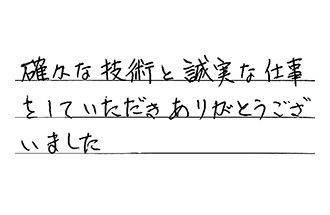 確々な技術と誠実な仕事
をしていただきありがとうござ
いました